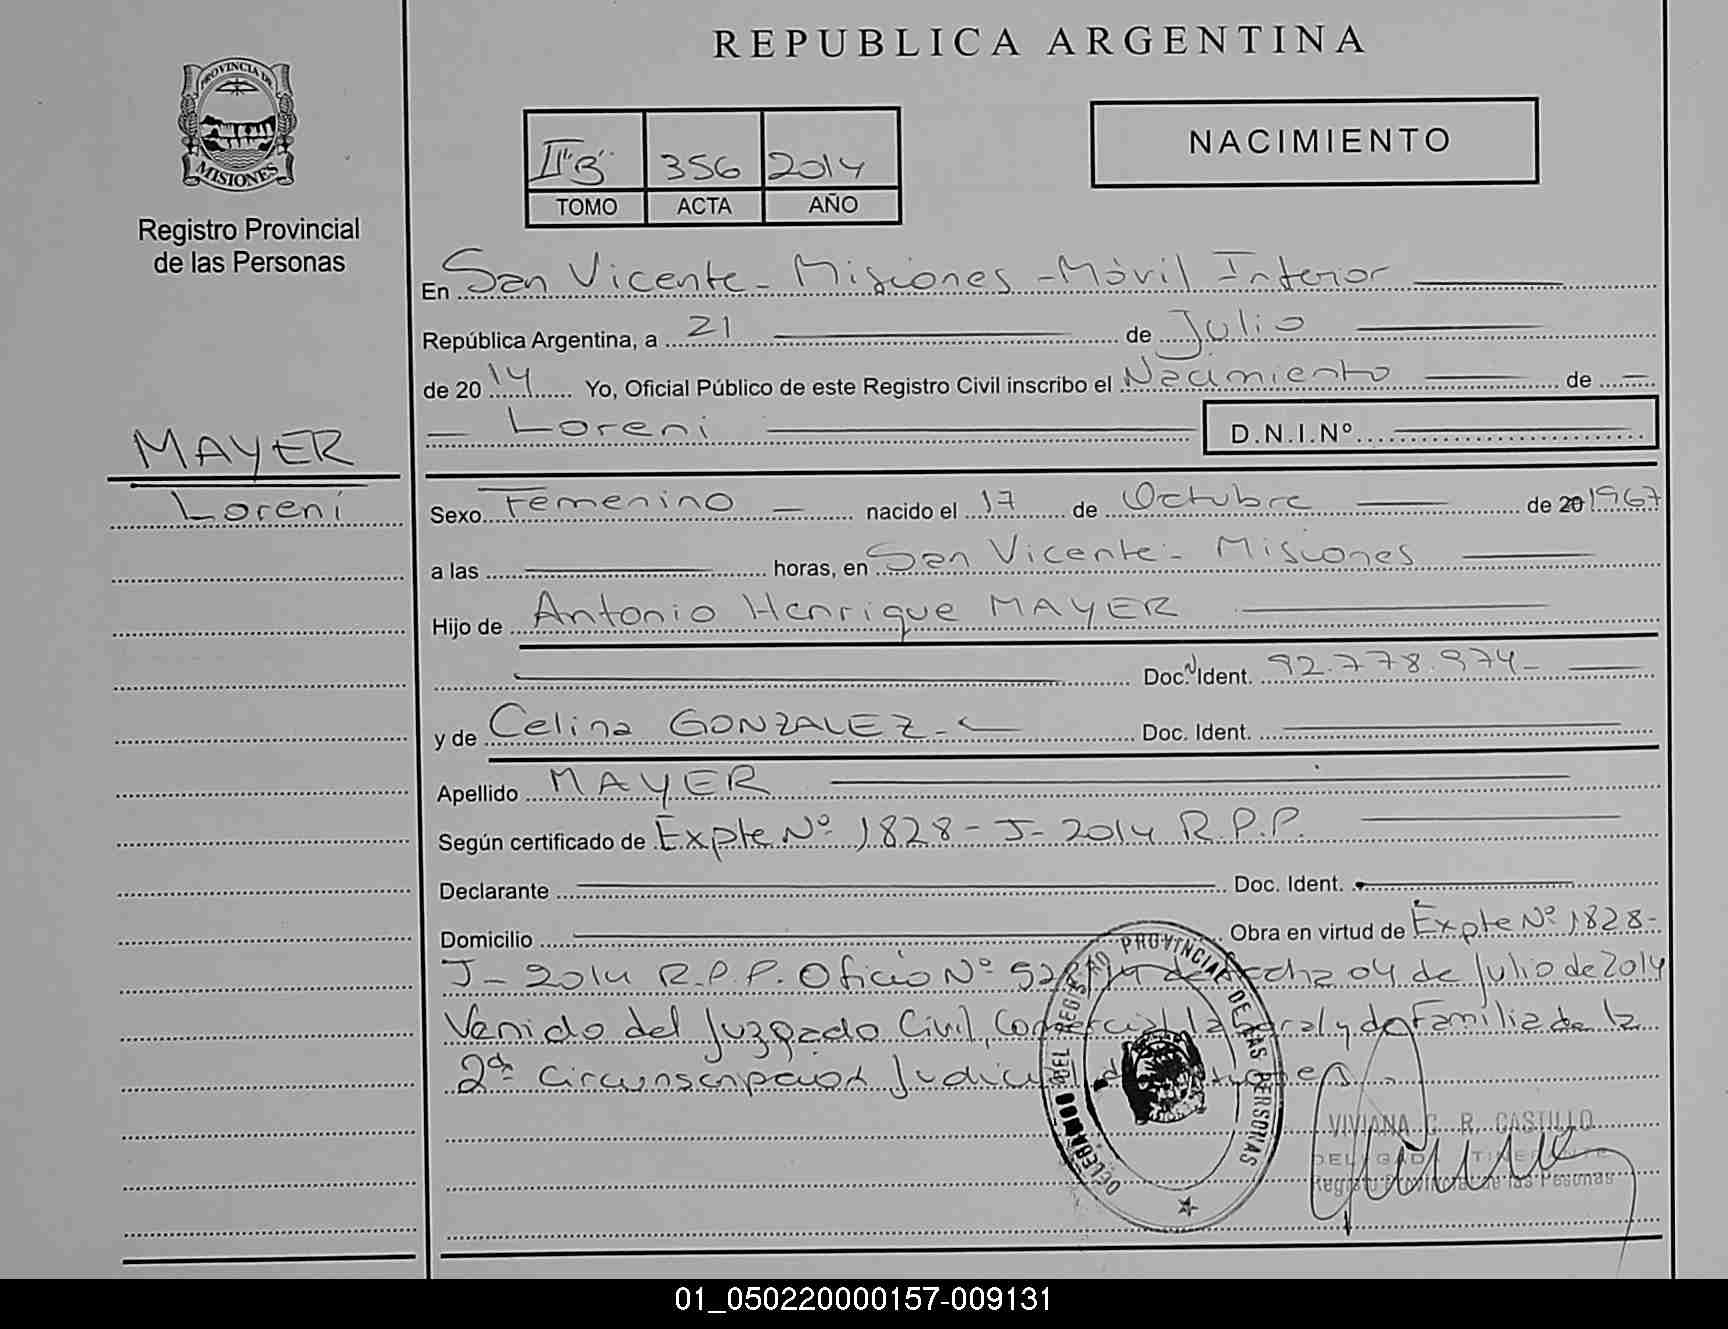 REPUBLICA ARGENTINA
PROVINCIA DE
MISIONES
Registro Provincial
de las Personas
NACIMIENTO
II "B" 356 2014
TOMO ACTA AÑO
En San Vicente - Misiones - Móvil Interior
República Argentina, a 21 de Julio
de 2014 Yo, Oficial Público de este Registro Civil inscribo el Nacimiento de
Loreni D.N.I.Nº
MAYER
Loreni
Sexo Femenino nacido el 17 de Octubre de 20 1967
a las horas, en San Vicente - Misiones
Hijo de Antonio Henrique MAYER
Doc. Ident. 92.778.974-
y de Celina GONZALEZ- Doc. Ident.
Apellido MAYER
Según certificado de Expte Nº 1828-J-2014 R.P.P.
Declarante Doc. Ident.
Domicilio Obra en virtud de Expte Nº 1828-
J-2014 R.P.P. Oficio Nº de fecha 04 de Julio de 2014
Venido del Juzgado Civil, Comercial, Laboral y de Familia de la
2da Circunscripción Judicial de Misiones.
DEL REGISTRO PROVINCIAL DE LAS PERSONAS
VIVIANA G. R. CASTILLO
DELEGADA ITINERANTE
Registro Provincial de las Personas
01_050220000157-009131